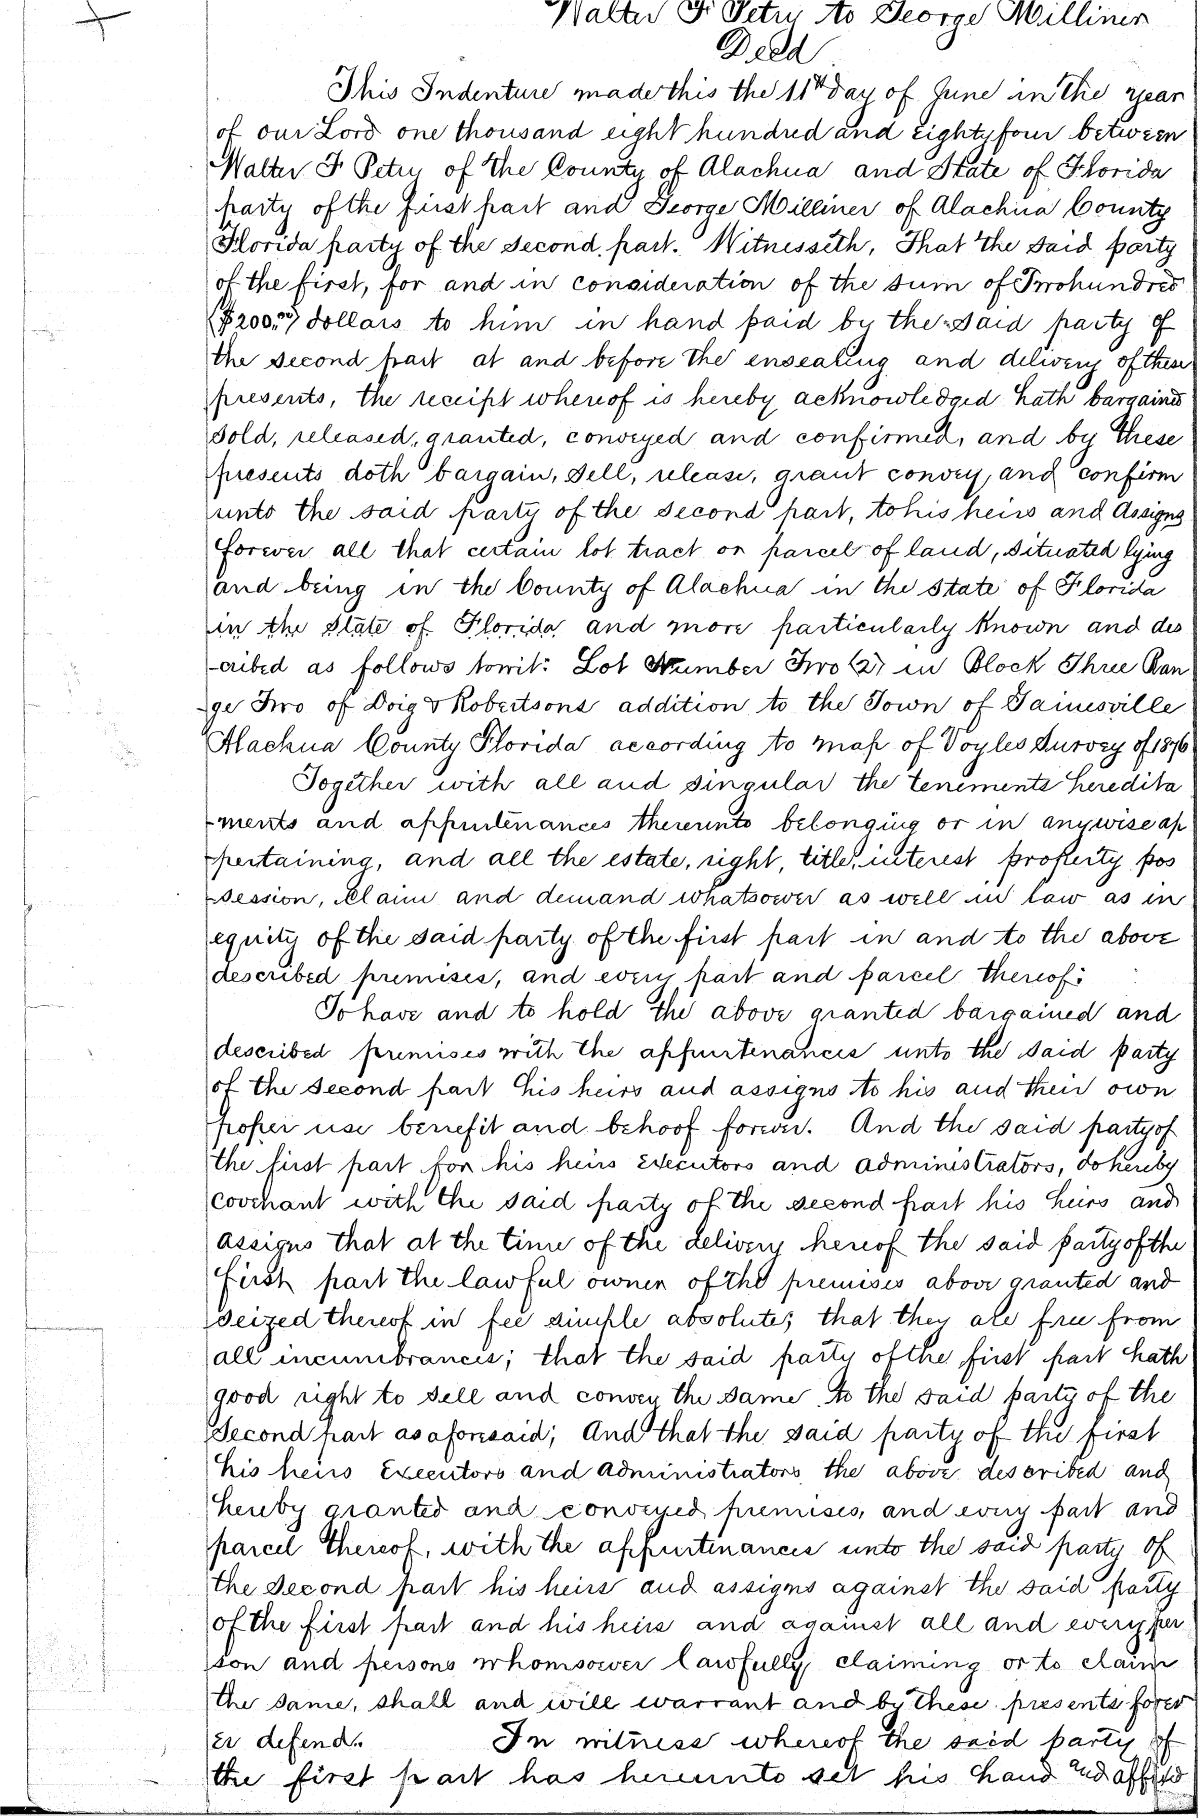 Walter F. Petry to George Milliner
Deed
This Indenture made this the 11th day of June in the year
of our Lord one thousand eight hundred and Eighty four between
Walter F Petry of the County of Alachua and State of Florida
party of the first part and George Milliner of Alachua County
Florida party of the second part. Witnesseth, That the said party
of the first, for and in consideration of the sum of Two hundred
($200.00) dollars to him in hand paid by the said party of
the second part at and before the ensealing and delivery of these
presents, the receipt whereof is hereby acknowledged hath bargained
sold, released, granted, conveyed and confirmed, and by these
presents doth bargain, sell, release, grant convey, and confirm
unto the said party of the second part, to his heirs and Assigns
forever all that certain lot tract or parcel of land, situated lying
and being in the County of Alachua in the State of Florida
in the State of Florida and more particularly known and des
-cribed as follows towit: Lot Number Two (2) in Block Three Ran
-ge Two of Doig & Robertsons addition to the Town of Gainesville
Alachua County Florida according to map of Voyles Survey of 1876
Together with all and singular the tenements heredita
-ments and appurtenances thereunto belonging or in anywise ap
-pertaining, and all the estate, right, title, interest property pos
-session, claim and demand whatsoever as well in law as in
equity of the said party of the first part in and to the above
described premises, and every part and parcel thereof:
To have and to hold the above granted bargained and
described premises with the appurtenances unto the said party
of the second part his heirs and assigns to his and their own
proper use benefit and behoof forever. And the said party of
the first part for his heirs Executors and administrators, do hereby
covenant with the said party of the second part his heirs and
assigns that at the time of the delivery hereof the said party of the
first part the lawful owner of the premises above granted and
seized thereof in fee simple absolute; that they are free from
all incumbrances; that the said party of the first part hath
good right to sell and convey the same to the said party of the
second part as aforesaid; And that the said party of the first
his heirs Executors and administrators the above described and
hereby granted and conveyed premises, and every part and
parcel thereof, with the appurtenances unto the said party of
the second part his heirs and assigns against the said party
of the first part and his heirs and against all and every per
son and persons whomsoever lawfully claiming or to claim
the same, shall and will warrant and by these presents forev
er defend. In witness whereof the said party of
the first part has hereunto set his hand and affixed